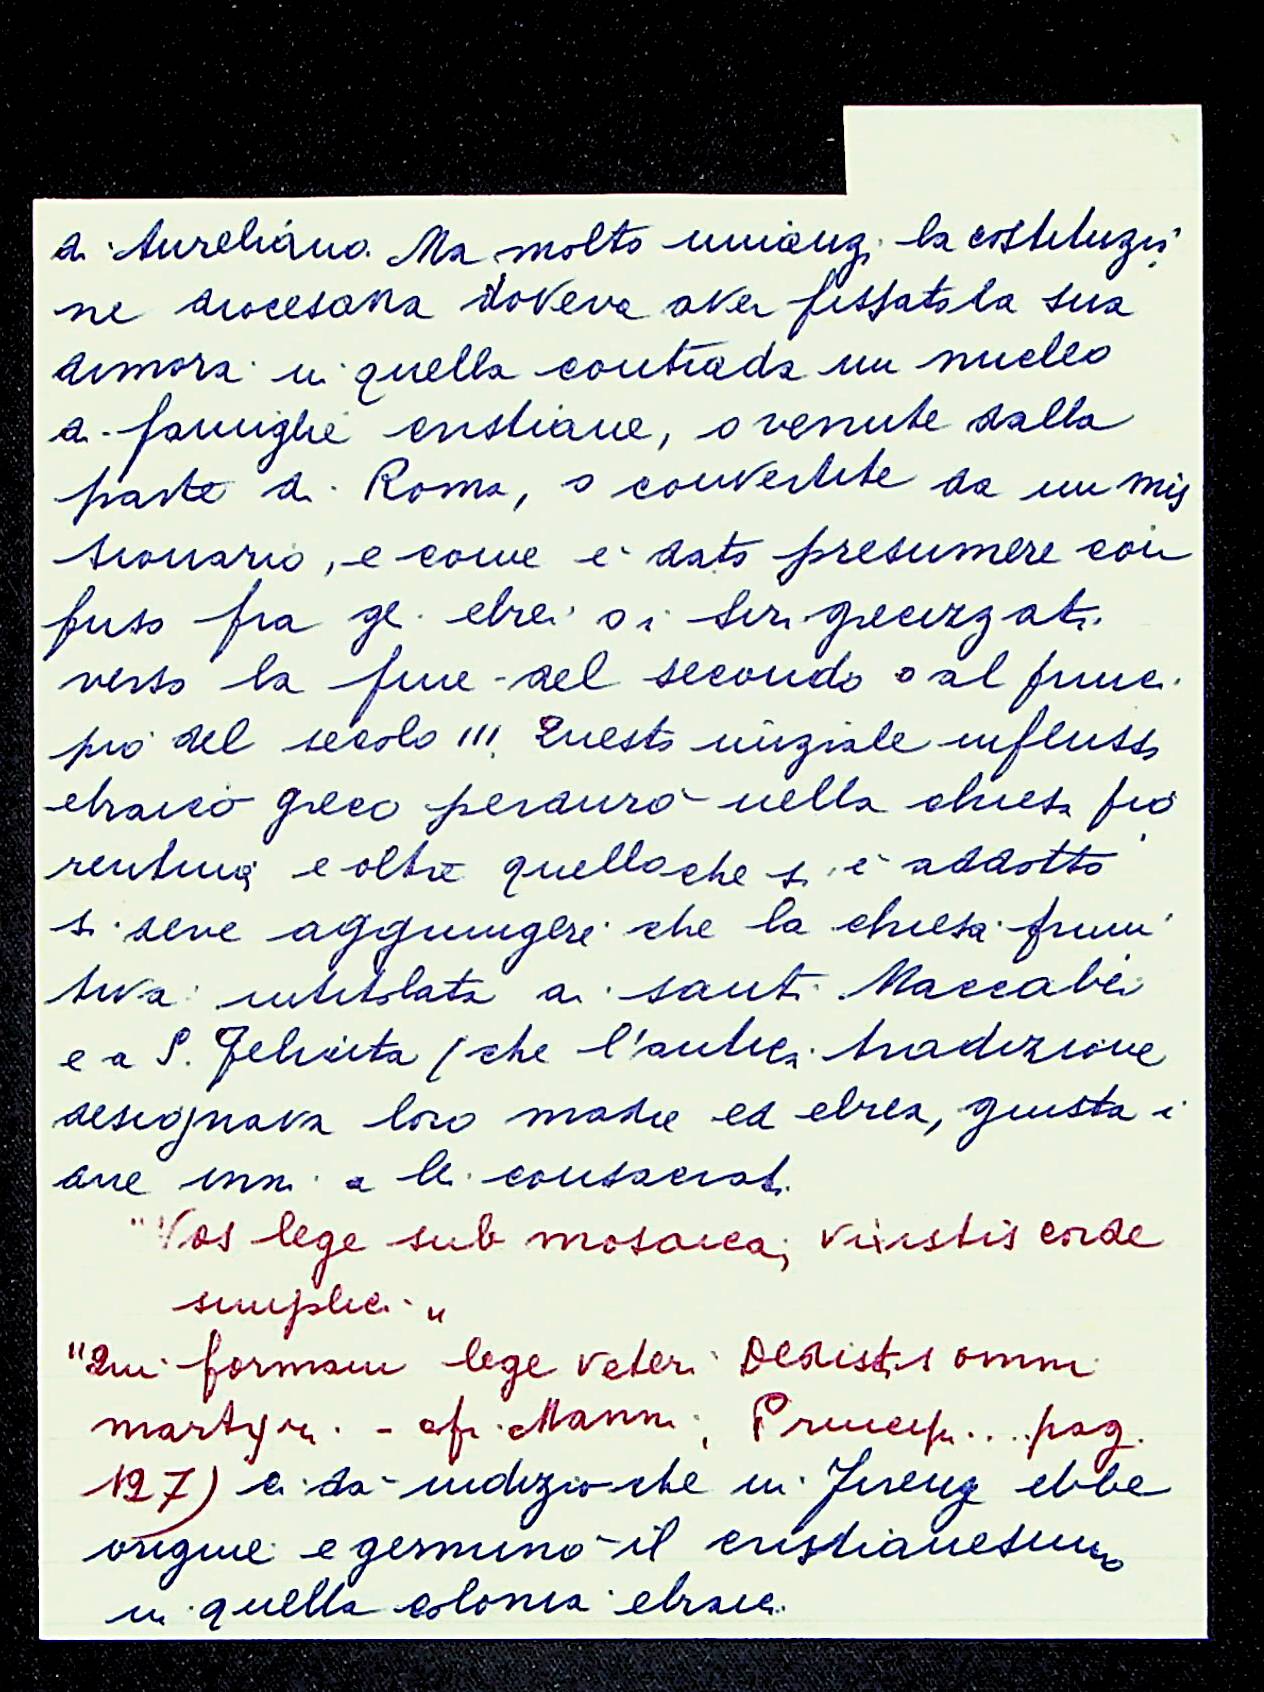 di Aureliano. Ma molto innanzi la costituzio
ne diocesana doveva aver fissato la sua
dimora in quella contrada un nucleo
di famiglie cristiane, o venute dalla
parte di Roma, o convertite da un mis
sionario, e come è dato presumere con
fuso fra gli ebrei o i siri grecizzati
verso la fine del secondo o al princi
pio del secolo III. Questo iniziale influsso
ebraico greco perdurò nella chiesa fio
rentina e oltre quello che si è addotto
si deve aggiungere che la chiesa primi
tiva intitolata ai santi Maccabei
e a S. Felicita (che l'antica tradizione
designava loro madre ed ebrea, giusta i
due inni a lei consacrati.
"Vos lege sub mosaica, vixistis corde
simplici"
"Qui formam lege veteri Dedistis omni
martyri. - cfr. Manni, Princip... pag.
127) ci dà indizio che in Firenze ebbe
origine e germinò il cristianesimo
in quella colonia ebraica.